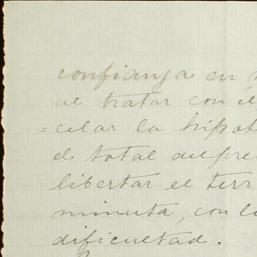 confianza en
al tratar con él
=celar la hipot
el total del pre
libertar el terr
minuta, con la
dificultad.